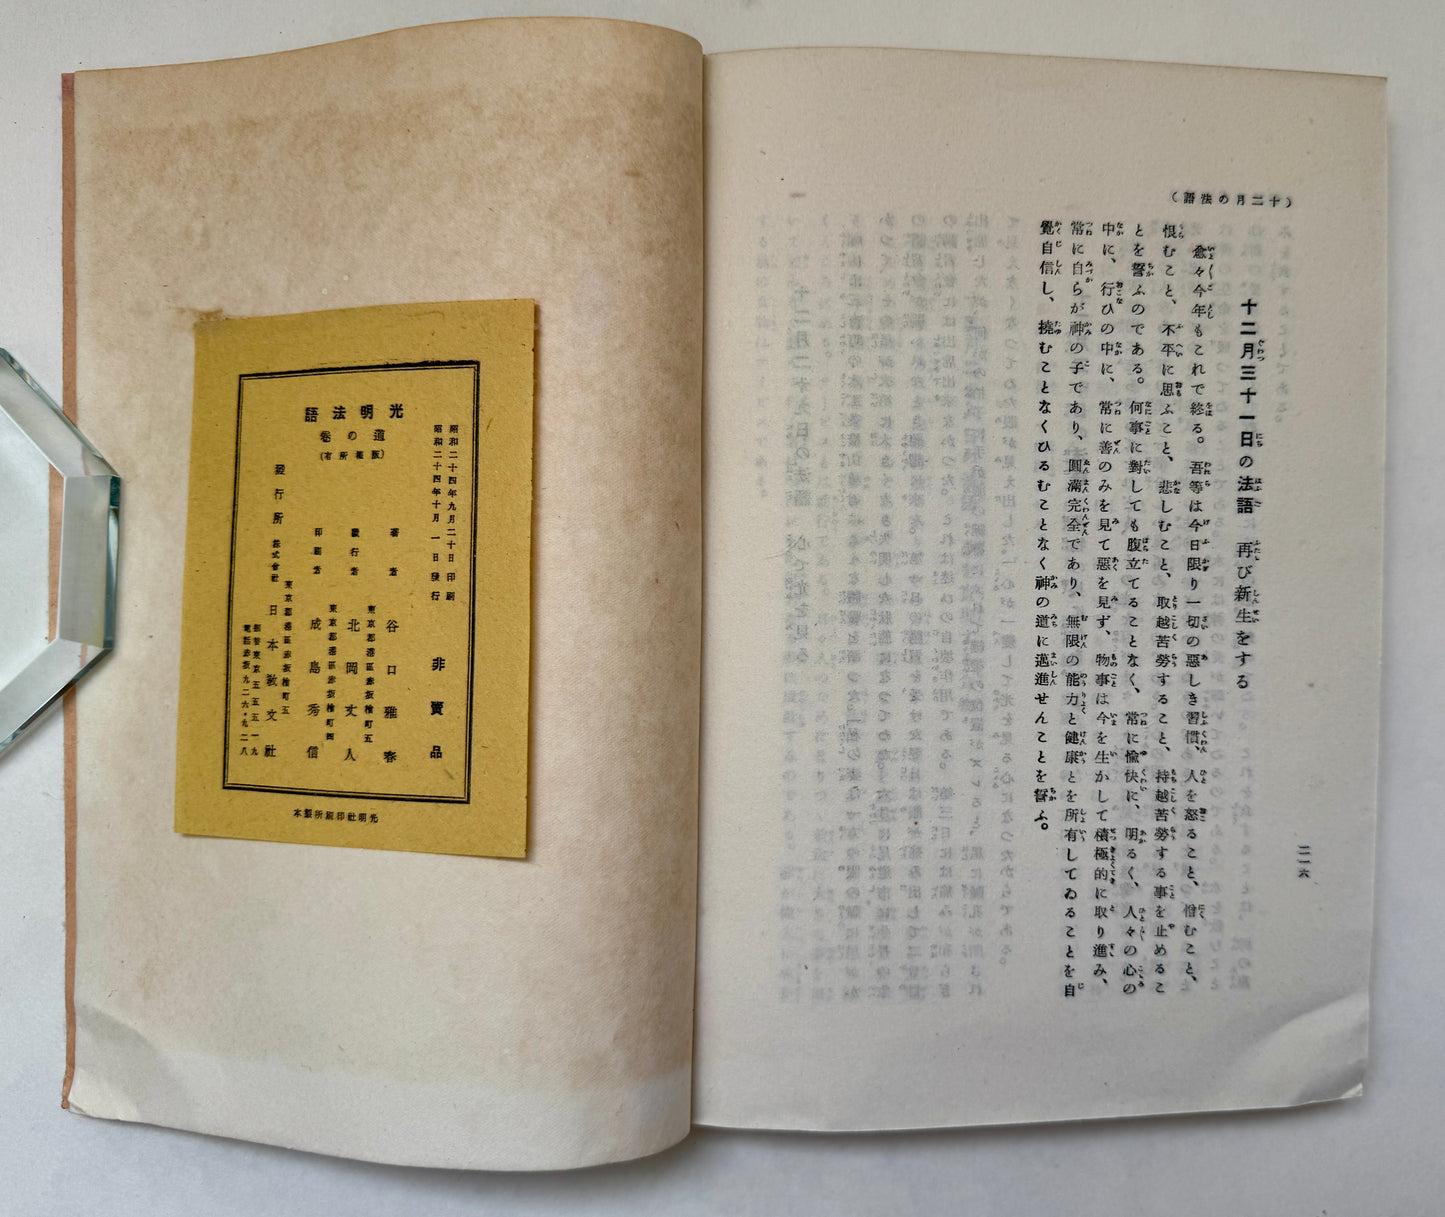 (十二月の法語)
十二月三十一日の法語　再び新生をする
愈々今年もこれで終る。吾等は今日限り一切の惡しき習慣、人を怒ること、憎むこと、
恨むこと、不平に思ふこと、悲しむこと、取越苦勞すること、持越苦勞する事を止めるこ
とを誓ふのである。何事に對しても腹立てることなく、常に愉快に、明るく、人々の心の
中に、行ひの中に、常に善のみを見て惡を見ず、物事は今を生かして積極的に取り進み、
常に自らが神の子であり、圓滿完全であり、無限の能力と健康とを所有してゐることを自
覺自信し、撓むことなくひるむことなく神の道に邁進せんことを誓ふ。
二一六
昭和二十四年九月二十日印刷
昭和二十四年十月一日發行
光明法語
道の卷
(版權所有)
非賣品
著者　谷口雅春
東京都港區赤坂檜町五
發行者　北岡丈人
東京都港區赤坂檜町四
印刷者　成島秀信
東京都港區赤坂檜町五
發行所　株式會社　日本敎文社
電話赤坂九二六・九二八
光明社印刷所製本